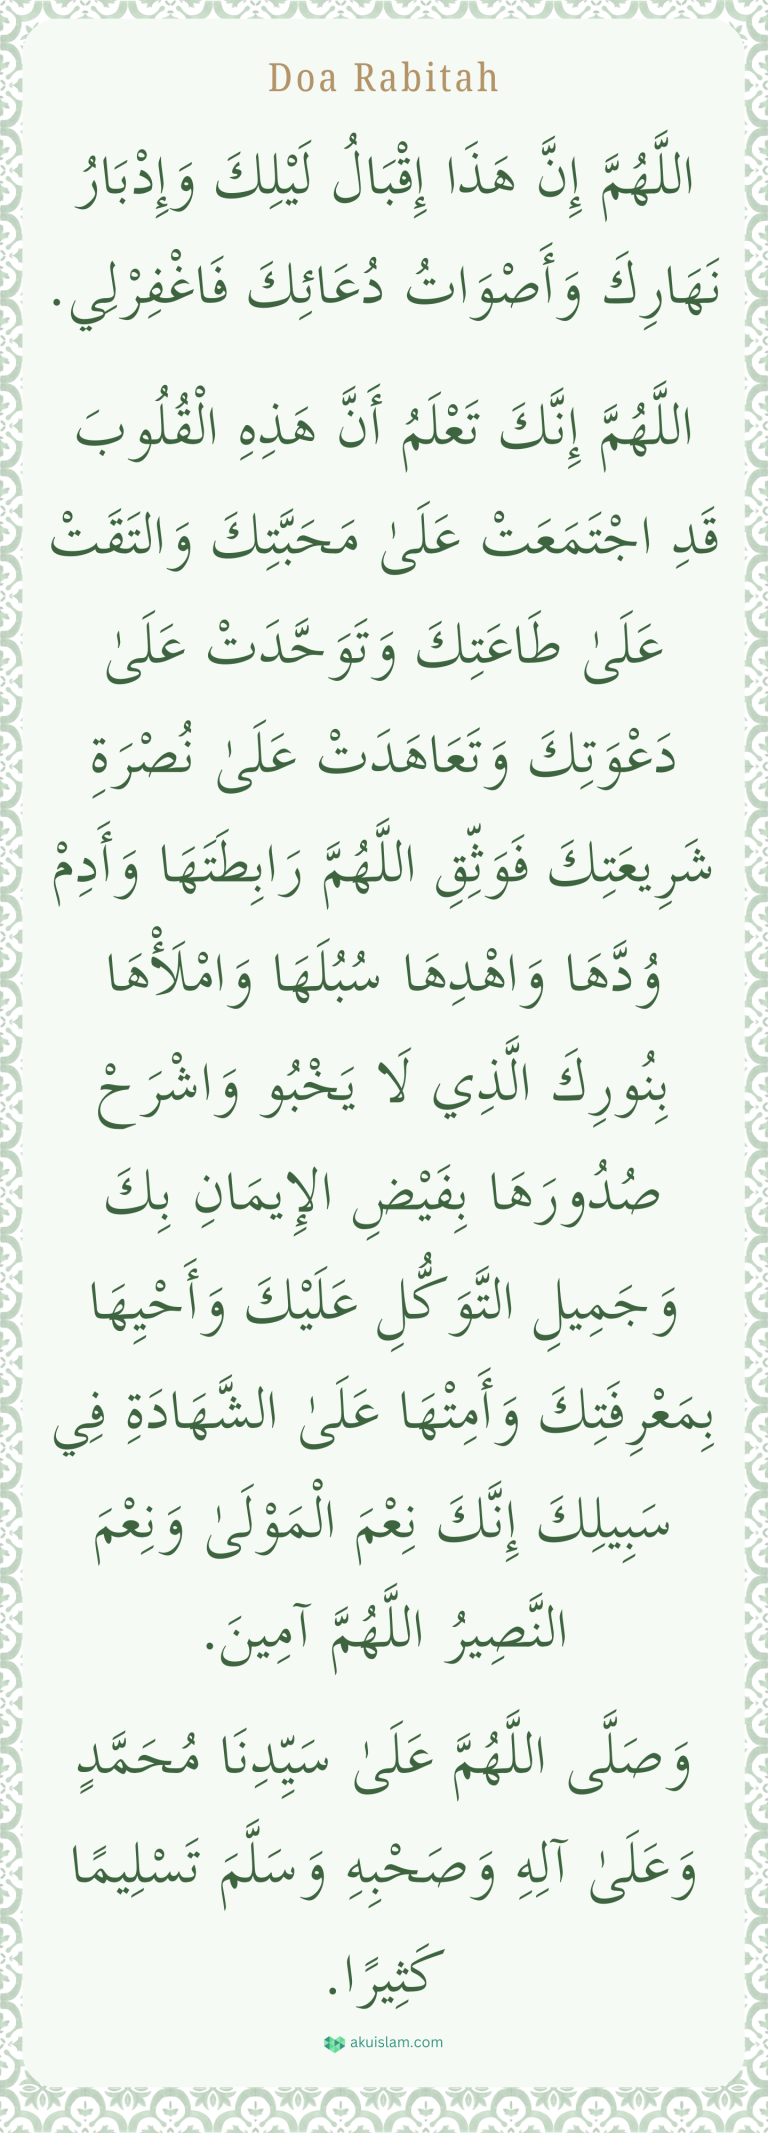 Doa Rabitah
اللَّهُمَّ إِنَّ هَذَا إِقْبَالُ لَيْلِكَ وَإِدْبَارُ
نَهَارِكَ وَأَصْوَاتُ دُعَائِكَ فَاغْفِرْلِي.
اللَّهُمَّ إِنَّكَ تَعْلَمُ أَنَّ هَذِهِ الْقُلُوبَ
قَدِ اجْتَمَعَتْ عَلَىٰ مَحَبَّتِكَ وَالتَقَتْ
عَلَىٰ طَاعَتِكَ وَتَوَحَّدَتْ عَلَىٰ
دَعْوَتِكَ وَتَعَاهَدَتْ عَلَىٰ نُصْرَةِ
شَرِيعَتِكَ فَوَثِّقِ اللَّهُمَّ رَابِطَتَهَا وَأَدِمْ
وُدَّهَا وَاهْدِهَا سُبُلَهَا وَامْلَأْهَا
بِنُورِكَ الَّذِي لَا يَخْبُو وَاشْرَحْ
صُدُورَهَا بِفَيْضِ الإِيمَانِ بِكَ
وَجَمِيلِ التَّوَكُّلِ عَلَيْكَ وَأَحْيِهَا
بِمَعْرِفَتِكَ وَأَمِتْهَا عَلَىٰ الشَّهَادَةِ فِي
سَبِيلِكَ إِنَّكَ نِعْمَ الْمَوْلَىٰ وَنِعْمَ
النَّصِيرُ اللَّهُمَّ آمِينَ.
وَصَلَّى اللَّهُمَّ عَلَىٰ سَيِّدِنَا مُحَمَّدٍ
وَعَلَىٰ آلِهِ وَصَحْبِهِ وَسَلَّمَ تَسْلِيمًا
كَثِيرًا.
akuislam.com